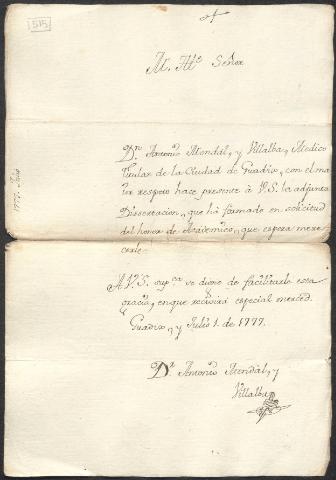 515
M. Ille Señor
Dn. Antonio Mendál, y Villalba, Medico
titular de la Ciudad de Guadix, con el ma
ior respeto hace presente à V.S. la adjunta
Dissertacion, que há formado en solicitud
del honor de Academico, que espera mere-
cerle.
A V.S. suppca. se digne de facilitarle esta
gracia, en que recivirá especial merced.
Guadix, y Julio 1. de 1777.
Dn. Antonio Mendál, y
Villalba
1777. Julio